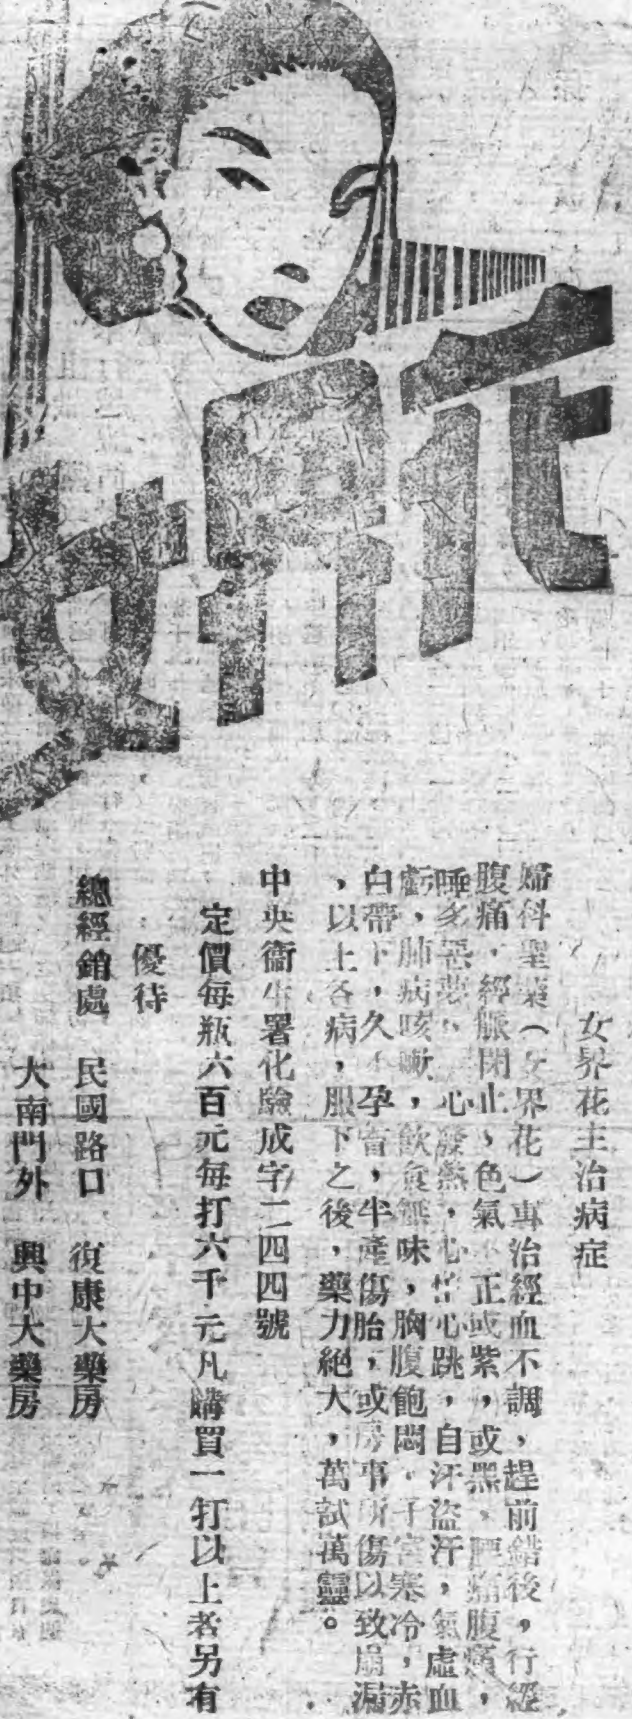 女界花
女界花主治病症
婦科聖藥（女界花）專治經血不調，趕前錯後，行經
腹痛，經脈閉止，色氣不正或紫，或黑，腰痛腹痛，
睡多惡夢，心發熱，心忙心跳，自汗盜汗，氣虛血
虧，肺病咳嗽，飲食無味，胸腹飽悶，子宮寒冷，赤
白帶下，久不孕育，半產傷胎，或房事所傷以致崩漏
，以上各病，服下之後，藥力絕大，萬試萬靈。
中央衞生署化驗成字二四四號
定價每瓶六百元每打六千元凡購買一打以上者另有
優待
總經銷處 民國路口 復康大藥房
大南門外 興中大藥房